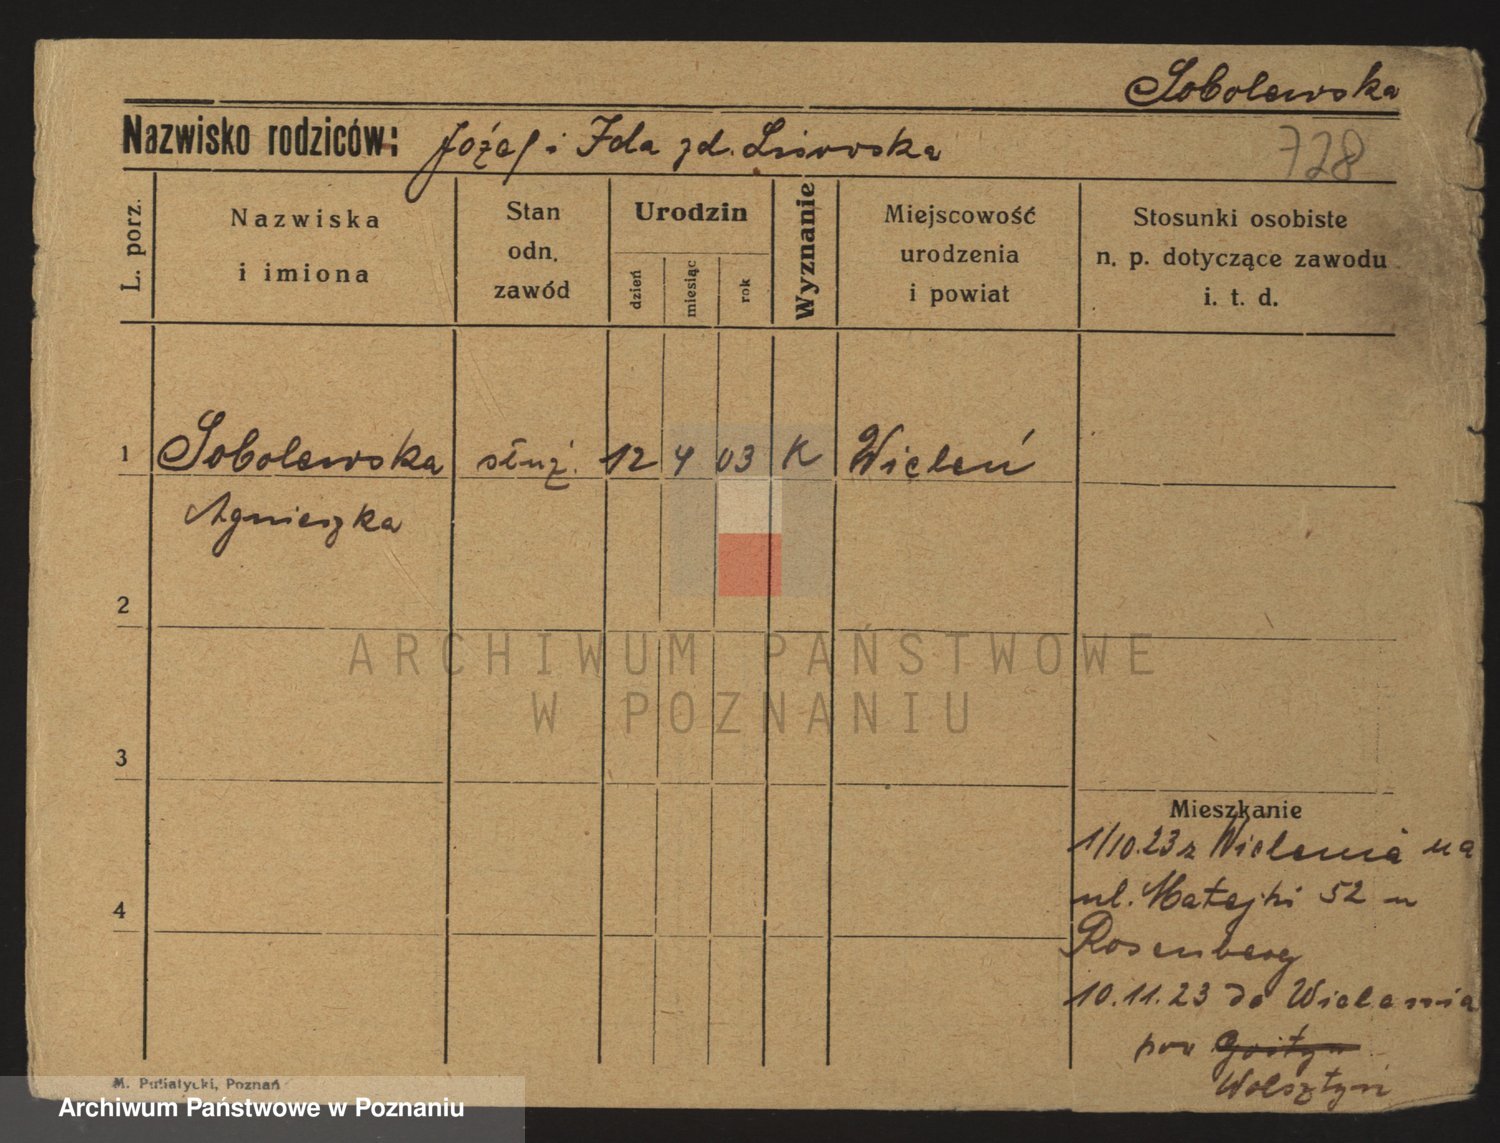 Sobolewska
Nazwisko rodziców: Józef i Ida zd. Lisowska
728
L. porz.
Nazwiska
i imiona
Stan
odn.
zawód
Urodzin
dzień
miesiąc
rok
Wyznanie
Miejscowość
urodzenia
i powiat
Stosunki osobiste
n. p. dotyczące zawodu
i. t. d.
1 Sobolewska służ. 12 4 03 K Wieleń
Agnieszka
2
ARCHIWUM PAŃSTWOWE
W POZNANIU
3
Mieszkanie
1/10.23 z Wielenia na
ul. Matejki 52 u
4
Rosenberg
10.11.23 do Wielenia
pow Gostyn
Wolsztyn
M. Putiatycki, Poznań
Archiwum Państwowe w Poznaniu